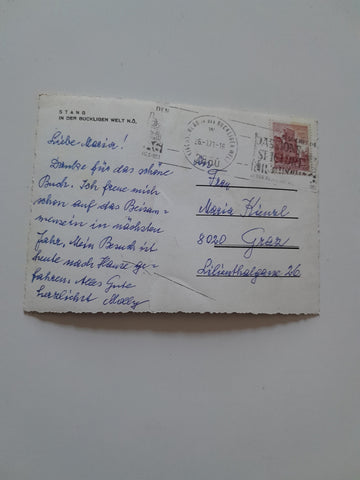 STANG
IN DER BUCKLIGEN WELT N.Ö.
Liebe Maria!
Danke für das schöne
Buch. Ich freue mich
schon auf das Beisam-
mensein im nächsten
Jahr. Mein Besuch ist
heute nach Hause ge-
fahren. Alles Gute
herzlichst Molly
2860
Frau
Maria Kienzl
8020 Graz
Lilienthalgasse 26